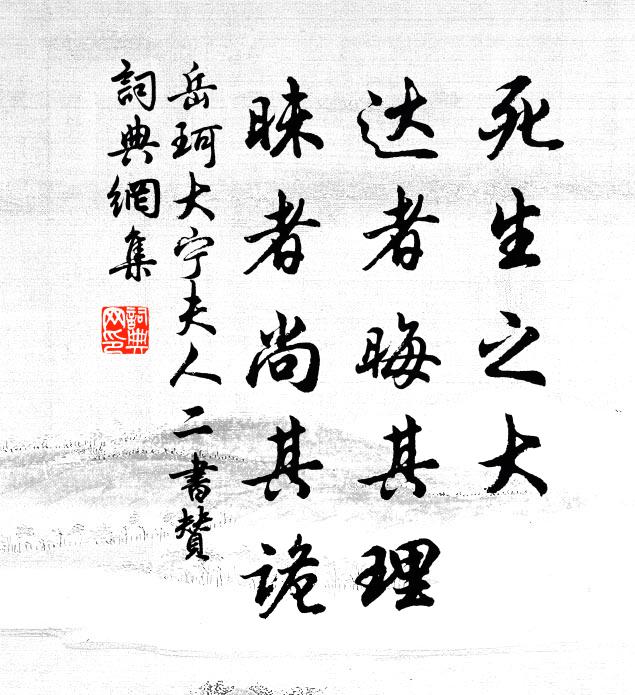 死生之大
达者晦其理
昧者尚其诡
岳珂大宁夫人二书赞
詞典網集
詞典网印